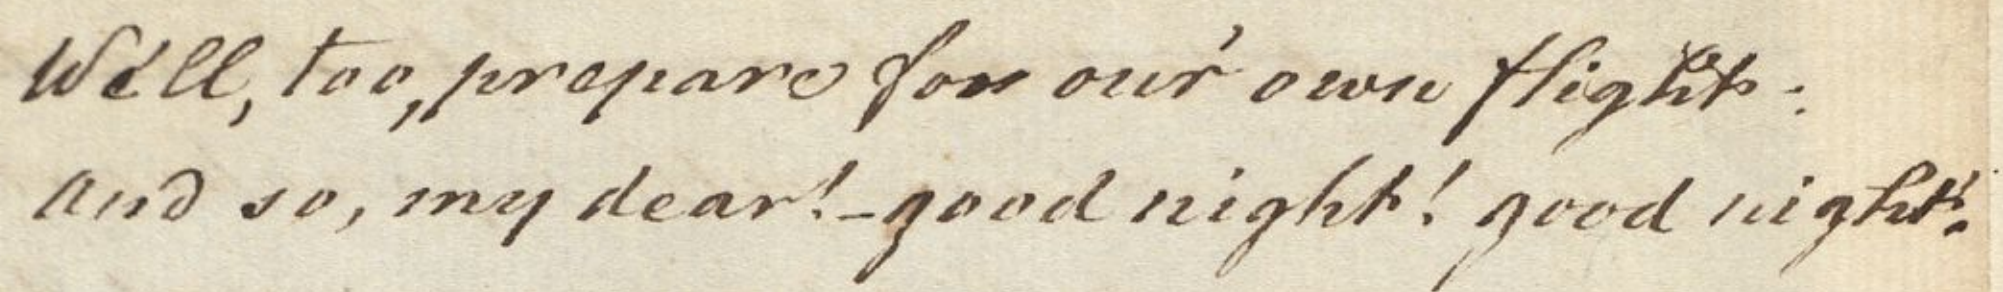 We'll, too, prepare for our own flight:
And so, my dear!—good night! good night!